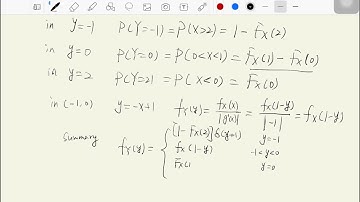 in y=-1 P(Y=-1)=P(X>2)=1-Fx(2)
in y=0 P(Y=0)=P(0<X<1)=Fx(1)-Fx(0)
in y=2 P(Y=2)=P(X<0)=Fx(0)
in (-1,0) y=-x+1 fY(y)=fx(x)/|g'(x)|=fx(1-y)/|-1|=fx(1-y)
Summary fY(y)={ [1-Fx(2)]δ(y+1) y=-1
fx(1-y) -1<y<0
Fx(1 y=0